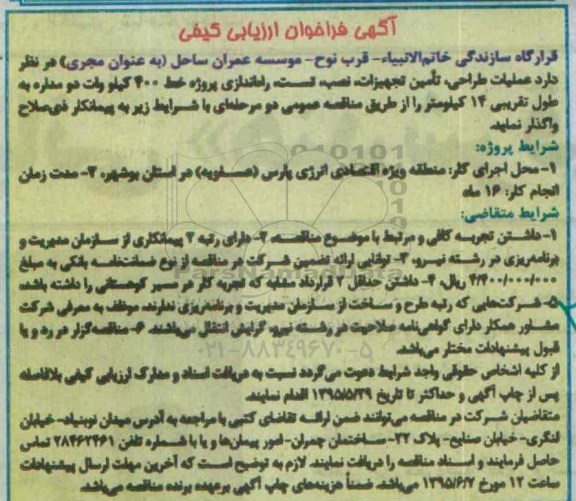 آگهی فراخوان ارزیابی کیفی
قرارگاه سازندگی خاتم‌الانبیاء- قرب نوح- موسسه عمران ساحل (به عنوان مجری) در نظر
دارد عملیات طراحی، تأمین تجهیزات، نصب، تست، راه‌اندازی پروژه خط ۴۰۰ کیلو وات دو مداره به
طول تقریبی ۱۴ کیلومتر را از طریق مناقصه عمومی دو مرحله‌ای با شرایط زیر به پیمانکار ذی‌صلاح
واگذار نماید.
شرایط پروژه:
۱- محل اجرای کار: منطقه ویژه اقتصادی انرژی پارس (عسلویه) در استان بوشهر، ۲- مدت زمان
انجام کار: ۱۶ ماه
شرایط متقاضی:
۱- داشتن تجربه کافی و مرتبط با موضوع مناقصه، ۲- دارای رتبه ۲ پیمانکاری از سازمان مدیریت و
برنامه‌ریزی در رشته نیرو، ۳- توانایی ارائه تضمین شرکت در مناقصه از نوع ضمانت‌نامه بانکی به مبلغ
۴/۴۰۰/۰۰۰/۰۰۰ ریال، ۴- داشتن حداقل ۲ قرارداد مشابه که تجربه کار در مسیر کوهستانی را داشته باشد،
۵- شرکت‌هایی که رتبه طرح و ساخت از سازمان مدیریت و برنامه‌ریزی ندارند، موظف به معرفی شرکت
مشاور همکار دارای گواهی‌نامه صلاحیت در رشته نیرو، گرایش انتقال می‌باشند. ۶- مناقصه‌گزار در رد و یا
قبول پیشنهادات مختار می‌باشد.
از کلیه اشخاص حقوقی واجد شرایط دعوت می‌گردد نسبت به دریافت اسناد و مدارک ارزیابی کیفی بلافاصله
پس از چاپ آگهی و حداکثر تا تاریخ ۱۳۹۵/۵/۲۹ اقدام نمایند.
متقاضیان شرکت در مناقصه می‌توانند ضمن ارائه تقاضای کتبی با مراجعه به آدرس میدان نوبنیاد- خیابان
لنگری- خیابان صنایع- پلاک ۲۲- ساختمان چمران- امور پیمان‌ها و یا با شماره تلفن ۲۸۴۶۲۴۶۱ تماس
حاصل فرمایند و اسناد مناقصه را دریافت نمایند. لازم به توضیح است که آخرین مهلت ارسال پیشنهادات
ساعت ۱۲ مورخ ۱۳۹۵/۶/۷ می‌باشد. ضمناً هزینه‌های چاپ آگهی برعهده برنده مناقصه می‌باشد.
ParsNamadData
۰۲۱-۸۸۳۴۹۶۷۰-۵